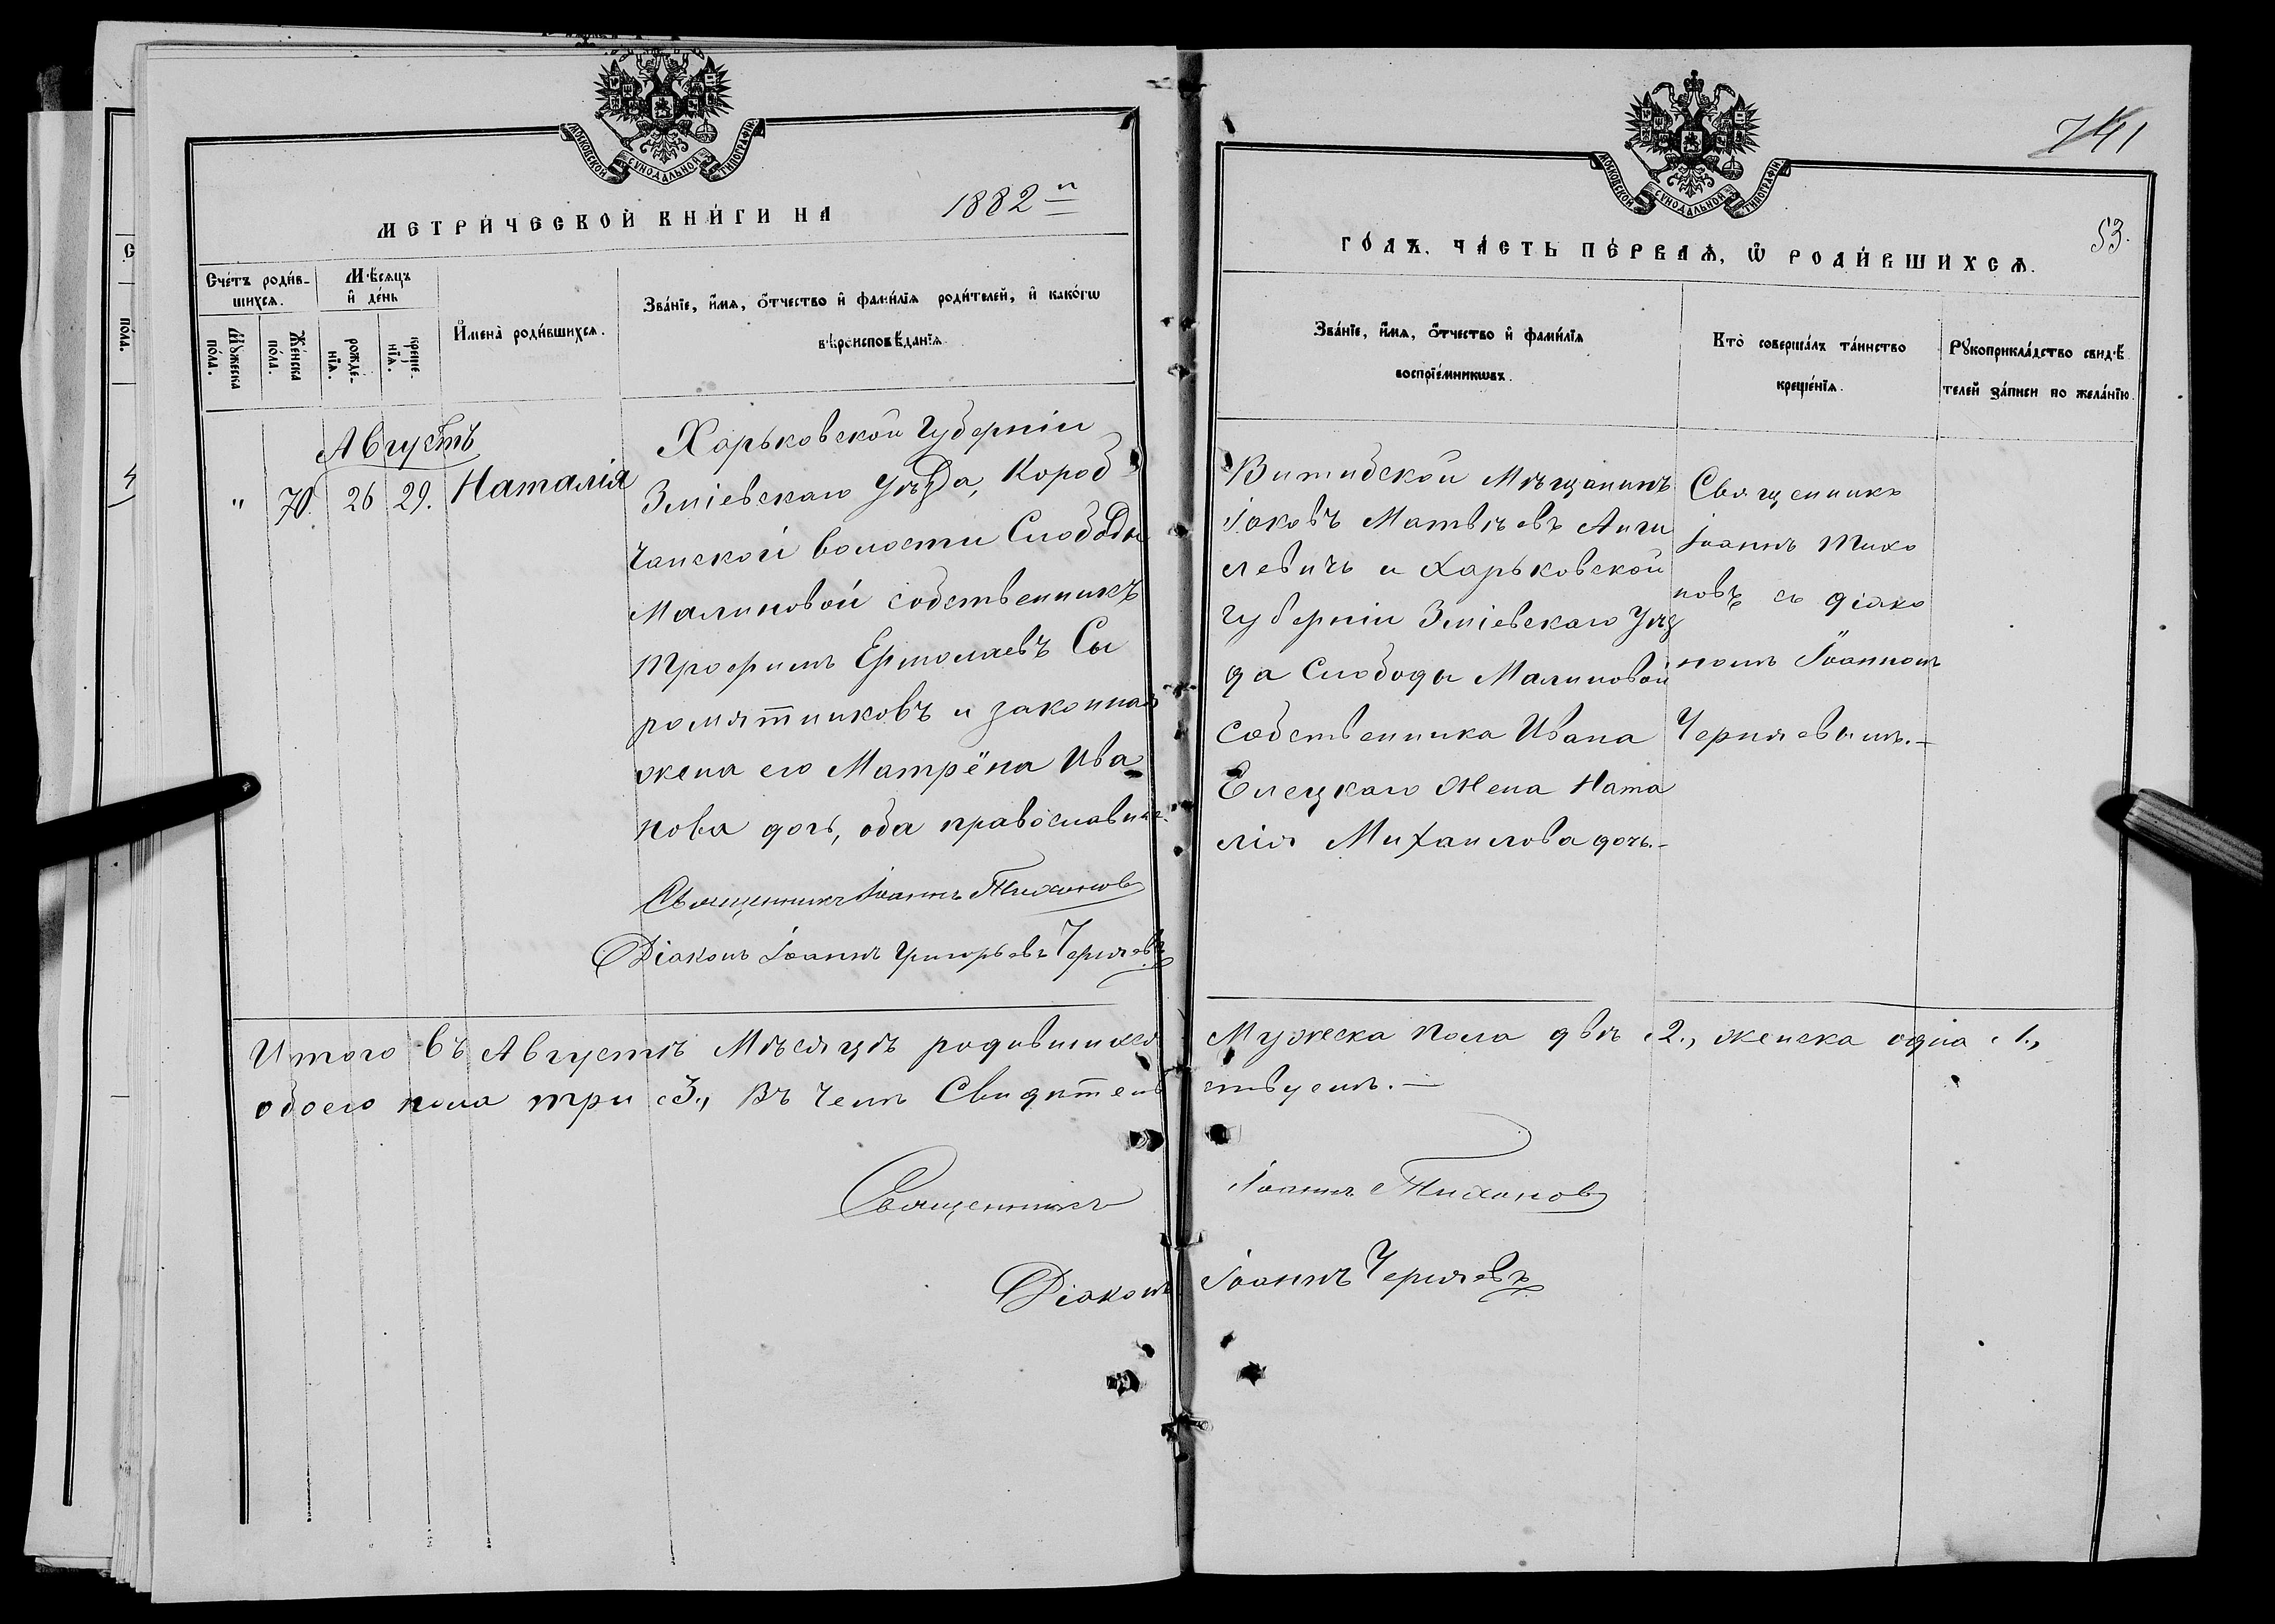 МОСКОВСКОЙ СУНОДАЛЬНОЙ ТИПОГРАФІИ
МЕТРИ́ЧЕСКОЙ КНИ́ГИ НА 1882й
Сче́тъ роди́в-
шихсѧ.
Мѣ́сѧцъ
и҆ де́нь
И҆мена̀ роди́вшихсѧ.
Зва́нїе, и҆́мѧ, ѻ҆́тчество и҆ фами́лїѧ роди́телей, и҆ како́гѡ
вѣроисповѣ́данїѧ.
Мꙋ́жеска
по́ла.
Же́нска
по́ла.
рожде́-
нїѧ.
креще́-
нїѧ.
Августъ
" 70. 26 29. Наталія
Харьковской Губерніи
Зміевскаго Уѣзда, Короб
чанской волости Слободы
Малиновой собственникъ
Трофимъ Ермолаевъ Сы
ромятниковъ и законная
жена его Матрёна Ива
нова дочь, оба православные.
Священникъ Іоаннъ Тихоновъ
Діаконъ Іоаннъ Григорьевъ Черняевъ
Итого въ Августѣ Мѣсяцѣ родившихся
обоего пола три 3., Въ чемъ Свидѣтель
Священникъ
Діаконъ
741
53.
МОСКОВСКОЙ СУНОДАЛЬНОЙ ТИПОГРАФІИ
ГО́ДЪ, ЧА́СТЬ ПЕ́РВАѦ, Ѡ҆ РОДИ́ВШИХСѦ.
Зва́нїе, и҆́мѧ, ѻ҆́тчество и҆ фами́лїѧ
воспрїе́мникѡвъ.
Кто̀ соверша́лъ та́инство
креще́нїѧ.
Рꙋкоприкла́дство свидѣ́
телей за́писи по жела́нїю.
Витибской Мѣщанинъ
Іаковъ Матвѣевъ Анги
левичъ и Харьковской
губерніи Зміевскаго Уѣз
да Слободы Малиновой
собственника Ивана
Елецкаго Жена Ната
лія Михаилова дочь.-
Священникъ
Іоаннъ Тихо
новъ съ діако
номъ Іоанномъ
Черняевымъ.-
Мужеска пола двѣ 2., женска одна 1.,
ствуемъ.-
Іоаннъ Тихоновъ
Іоаннъ Черняевъ